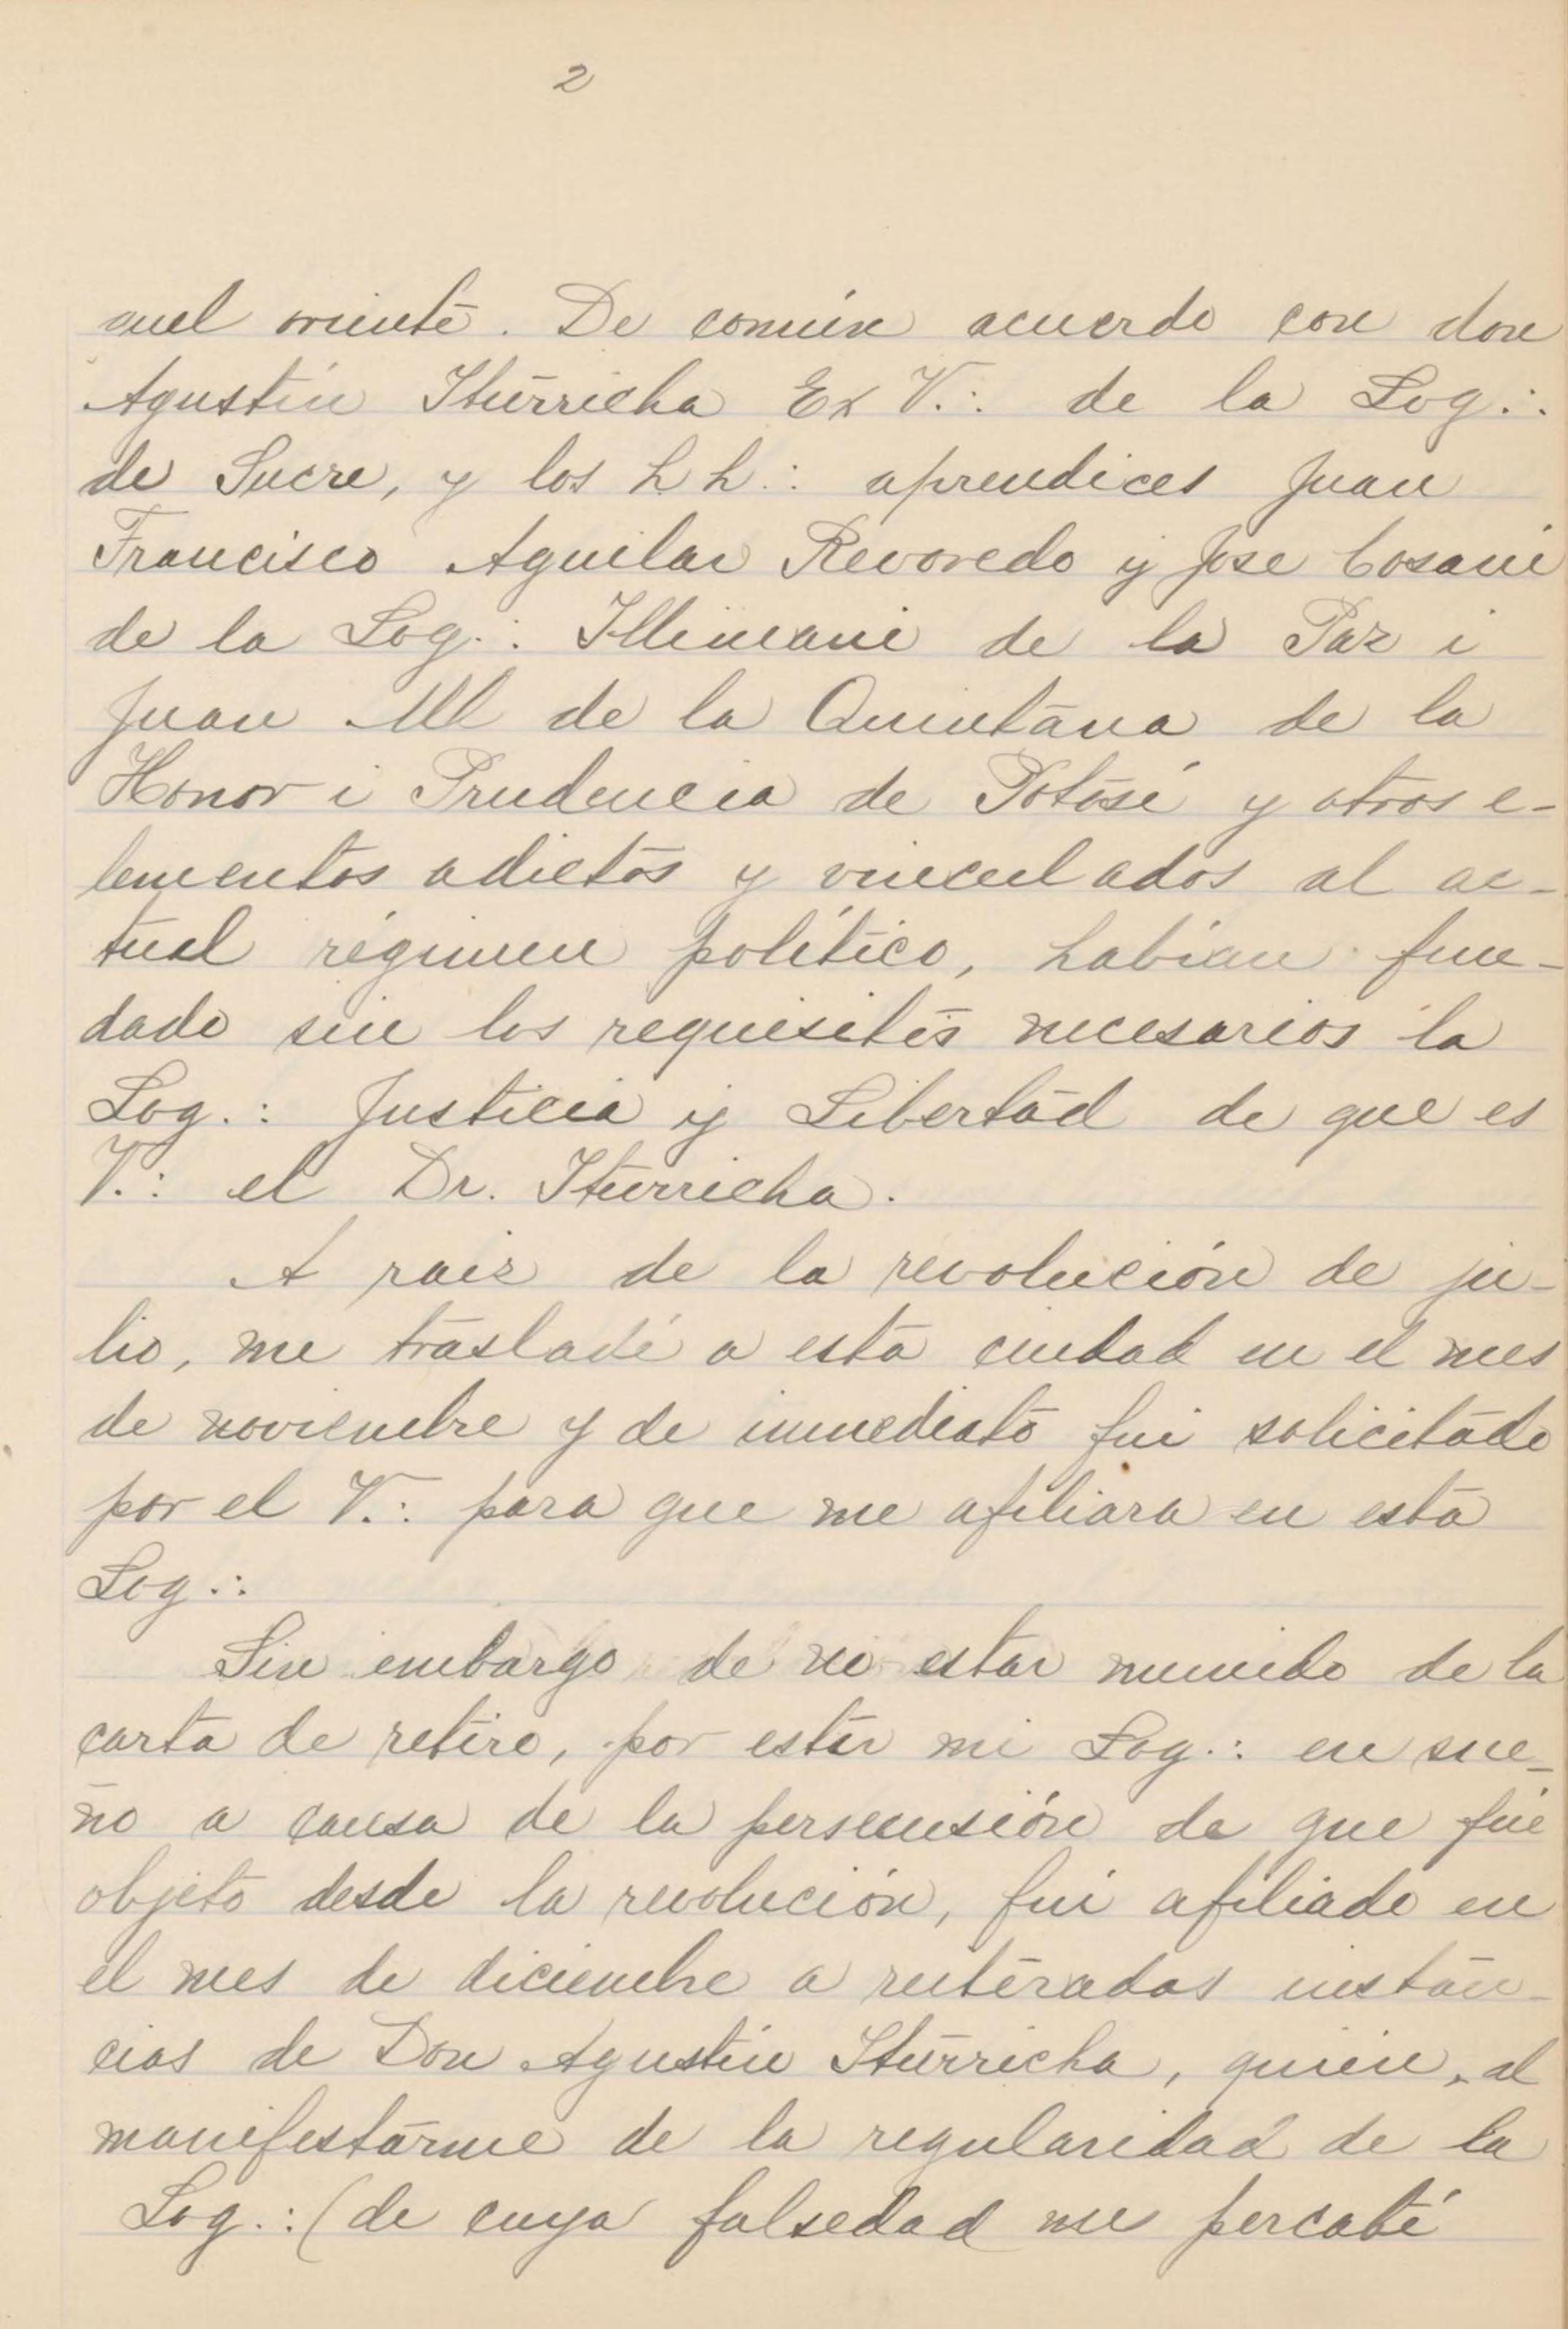 2
quel oriente. De común acuerdo con don
Agustín Iturricha Ex V.∴ de la Log.∴
de Sucre, y los h h.∴ aprendices Juan
Francisco Aguilar Revoredo y Jose Cosani
de la Log.∴ Illimani de la Paz i
Juan Ml de la Quintana de la
Honor i Prudencia de Potosí y otros e-
lementos adictos y vinculados al ac-
tual régimen político, habían fun-
dado sin los requisitos necesarios la
Log.∴ Justicia y Libertad de que es
V.∴ el Dr. Iturricha.
A raiz de la revolución de ju-
lio, me trasladé a esta ciudad en el mes
de noviembre y de inmediato fui solicitado
por el V.∴ para que me afiliara en esta
Log.∴
Sin embargo de no estar munido de la
carta de retiro, por estar mi Log.∴ en sue-
ño a causa de la persecusión de que fué
objeto desde la revolución, fui afiliado en
el mes de diciembre a reiteradas instan-
cias de Don Agustín Iturricha, quien, al
manifestarme de la regularidad de la
Log.∴ (de cuya falsedad me percaté